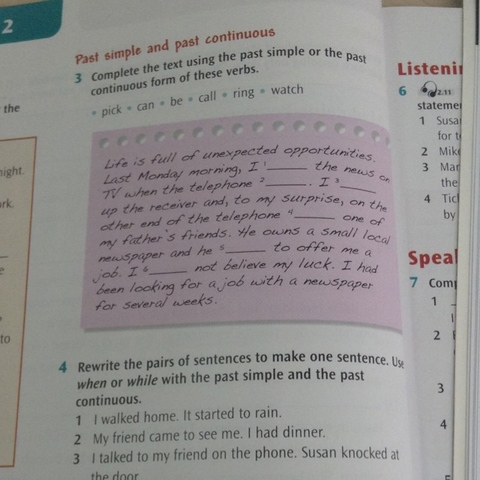 2
the
night.
ark.
e
to
Past simple and past continuous
3 Complete the text using the past simple or the past
continuous form of these verbs.
• pick • can • be • call • ring • watch
Life is full of unexpected opportunities.
Last Monday morning, I ¹_____ the news on
TV when the telephone ²_____. I ³_____
up the receiver and, to my surprise, on the
other end of the telephone ⁴_____ one of
my father's friends. He owns a small local
newspaper and he ⁵_____ to offer me a
job. I ⁶_____ not believe my luck. I had
been looking for a job with a newspaper
for several weeks.
4 Rewrite the pairs of sentences to make one sentence. Use
when or while with the past simple and the past
continuous.
1 I walked home. It started to rain.
2 My friend came to see me. I had dinner.
3 I talked to my friend on the phone. Susan knocked at
the door.
Listenin
6 2.11
stateme
1 Susa
for t
2 Mike
3 Mar
the
4 Tick
by
Speal
7 Comp
1
2
3
4